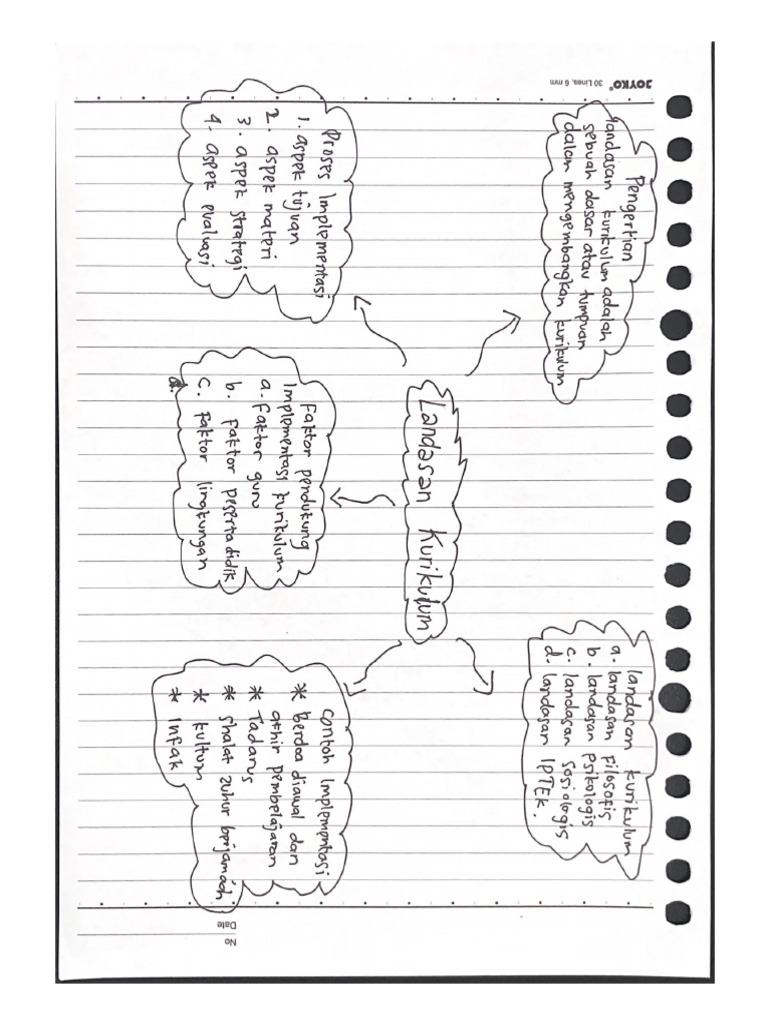 JOYKO® 30 Lines, 6 mm
No
Date
Landasan Kurikulum
Pengertian
landasan kurikulum adalah
sebuah dasar atau tumpuan
dalam mengembangkan kurikulum
landasan kurikulum
a. landasan Filosofis
b. landasan psikologis
c. landasan sosiologis
d. landasan IPTEK.
Proses Implementasi
1. aspek tujuan
2. aspek materi
3. aspek strategi
4. aspek evaluasi
Faktor pendukung
Implementasi kurikulum
a. Faktor guru
b. Faktor peserta didik
c. Faktor lingkungan
Contoh Implementasi
* berdoa diawal dan
akhir pembelajaran
* Tadarus
* shalat zuhur berjamaah
* kultum
* Infak